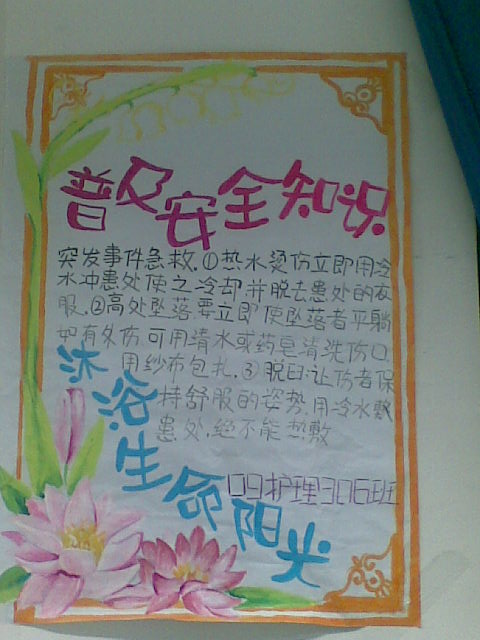 普及安全知识
突发事件急救.①热水烫伤立即用冷
水冲患处使之冷却,并脱去患处的衣
服.②高处坠落要立即使坠落者平躺
如有外伤可用清水或药皂清洗伤口.
用纱布包扎.③脱臼:让伤者保
持舒服的姿势.用冷水敷
患处,绝不能热敷
沐浴生命阳光
09护理306班